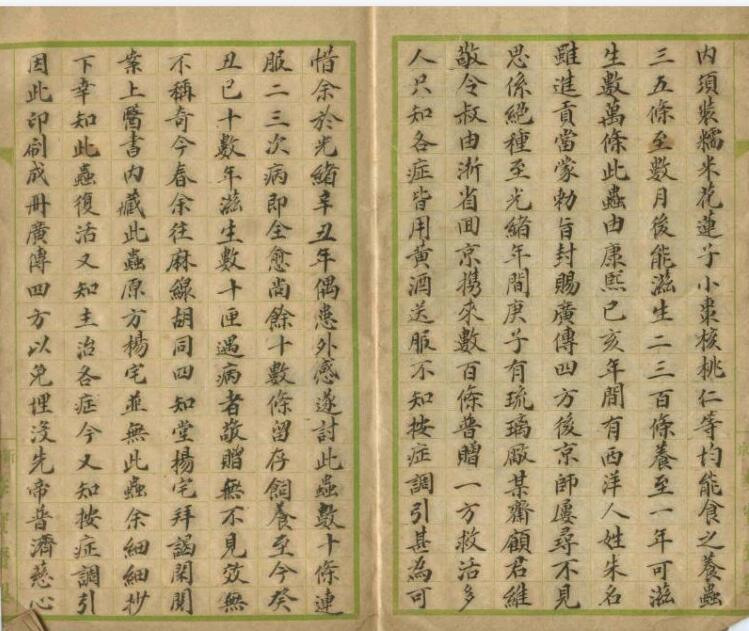 內須裝糯米花蓮子小棗核桃仁等均能食之養蟲
三五條至數月後能滋生二三百條養至一年可滋
生數萬條此蟲由康熙己亥年間有西洋人姓朱名
雖進貢當蒙勅旨封賜廣傳四方後京師屢尋不見
思係絕種至光緒年間庚子有琉璃廠某齋顧君維
敬令叔由浙省回京携來數百條普贈一方救活多
人只知各症皆用黃酒送服不知按症調引甚為可
惜余於光緒辛丑年偶患外感遂討此蟲數十條連
服二三次病即全愈尚餘十數條留存飼養至今癸
丑已十數年滋生數十匣遇病者敬贈無不見效無
不稱奇今春余往麻線胡同四知堂楊宅拜謁閑閱
案上醫書內藏此蟲原方楊宅並無此蟲余細細抄
下幸知此蟲復活又知主治各症今又知按症調引
因此印刷成冊廣傳四方以免埋沒先帝普濟慈心